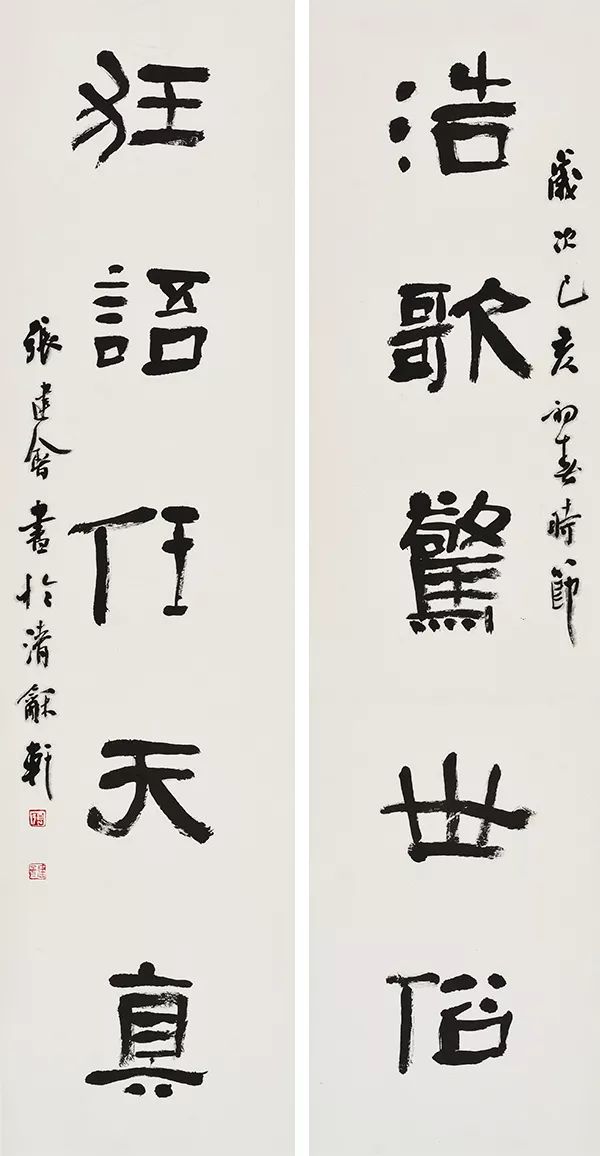 歲次己亥初春時節
浩歌驚世俗
狂語任天真
張建會書於清龢軒